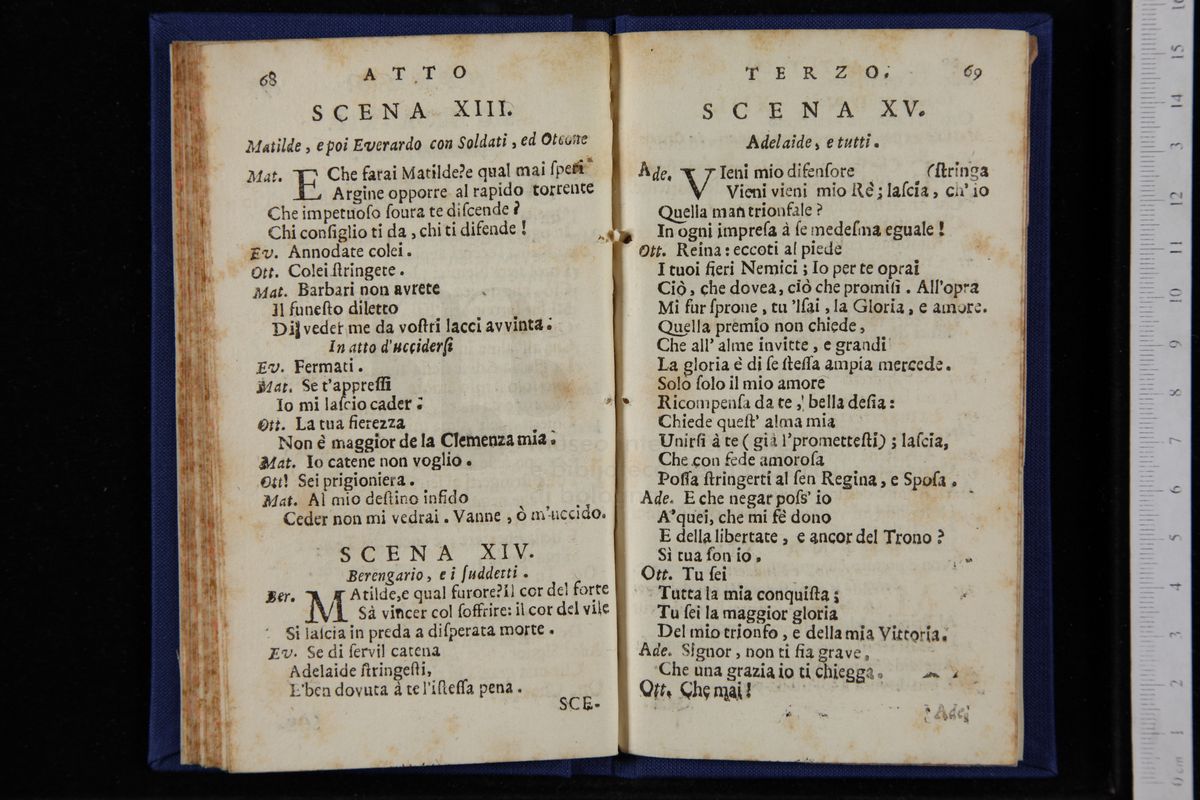 68 ATTO
SCENA XIII.
Matilde, e poi Everardo con Soldati, ed Ottone
Mat. E Che farai Matilde? e qual mai speri
Argine opporre al rapido torrente
Che impetuoso soura te discende?
Chi consiglio ti da, chi ti difende!
Ev. Annodate colei.
Ott. Colei stringete.
Mat. Barbari non avrete
Il funesto diletto
Di veder me da vostri lacci avvinta.
In atto d'uccidersi
Ev. Fermati.
Mat. Se t'appressi
Io mi lascio cader.
Ott. La tua fierezza
Non è maggior de la Clemenza mia.
Mat. Io catene non voglio.
Ott! Sei prigioniera.
Mat. Al mio destino infido
Ceder non mi vedrai. Vanne, ò m'uccido.
SCENA XIV.
Berengario, e i suddetti.
Ber. MAtilde, e qual furore? il cor del forte
Sà vincer col soffrire: il cor del vile
Si lascia in preda a disperata morte.
Ev. Se di servil catena
Adelaide stringesti,
E'ben dovuta à te l'istessa pena.
SCE-
TERZO. 69
SCENA XV.
Adelaide, e tutti.
Ade. VIeni mio difensore (stringa
Vieni vieni mio Rè; lascia, ch'io
Quella man trionfale?
In ogni impresa à se medesma eguale!
Ott. Reina: eccoti al piede
I tuoi fieri Nemici; Io per te oprai
Ciò, che dovea, ciò che promisi. All'opra
Mi fur sprone, tu 'lsai, la Gloria, e amore.
Quella premio non chiede,
Che all' alme invitte, e grandi
La gloria è di se stessa ampia mercede.
Solo solo il mio amore
Ricompensa da te, bella desia:
Chiede quest' alma mia
Unirsi à te (già l'promettesti); lascia,
Che con fede amorosa
Possa stringerti al sen Regina, e Sposa.
Ade. E che negar poss' io
A'quei, che mi fè dono
E della libertate, e ancor del Trono?
Sì tua son io.
Ott. Tu sei
Tutta la mia conquista;
Tu sei la maggior gloria
Del mio trionfo, e della mia Vittoria.
Ade. Signor, non ti sia grave,
Che una grazia io ti chiegga.
Ott. Che mai!
Ade